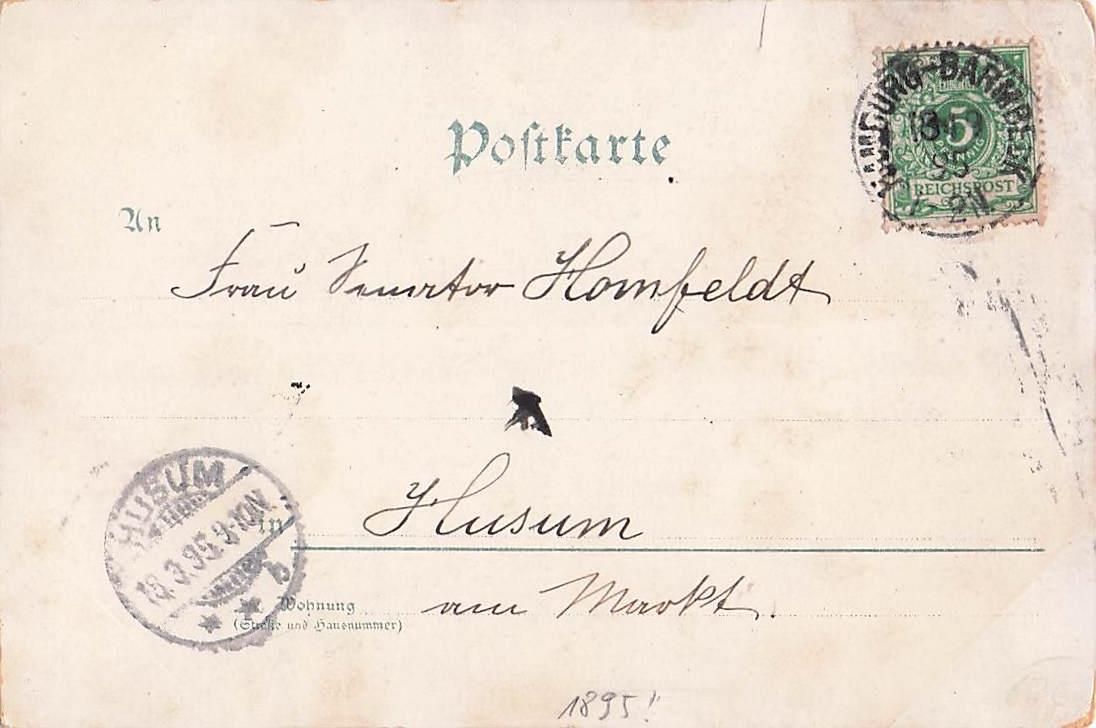 Postkarte
5
PFENNIG
REICHSPOST
HAMBURG-BARMBECK
95
1-2N
An
Frau Senator Homfeldt
HUSUM
18.3.95.9-10N
in Husum
Wohnung
(Straße und Hausnummer)
am Markt.
1895!